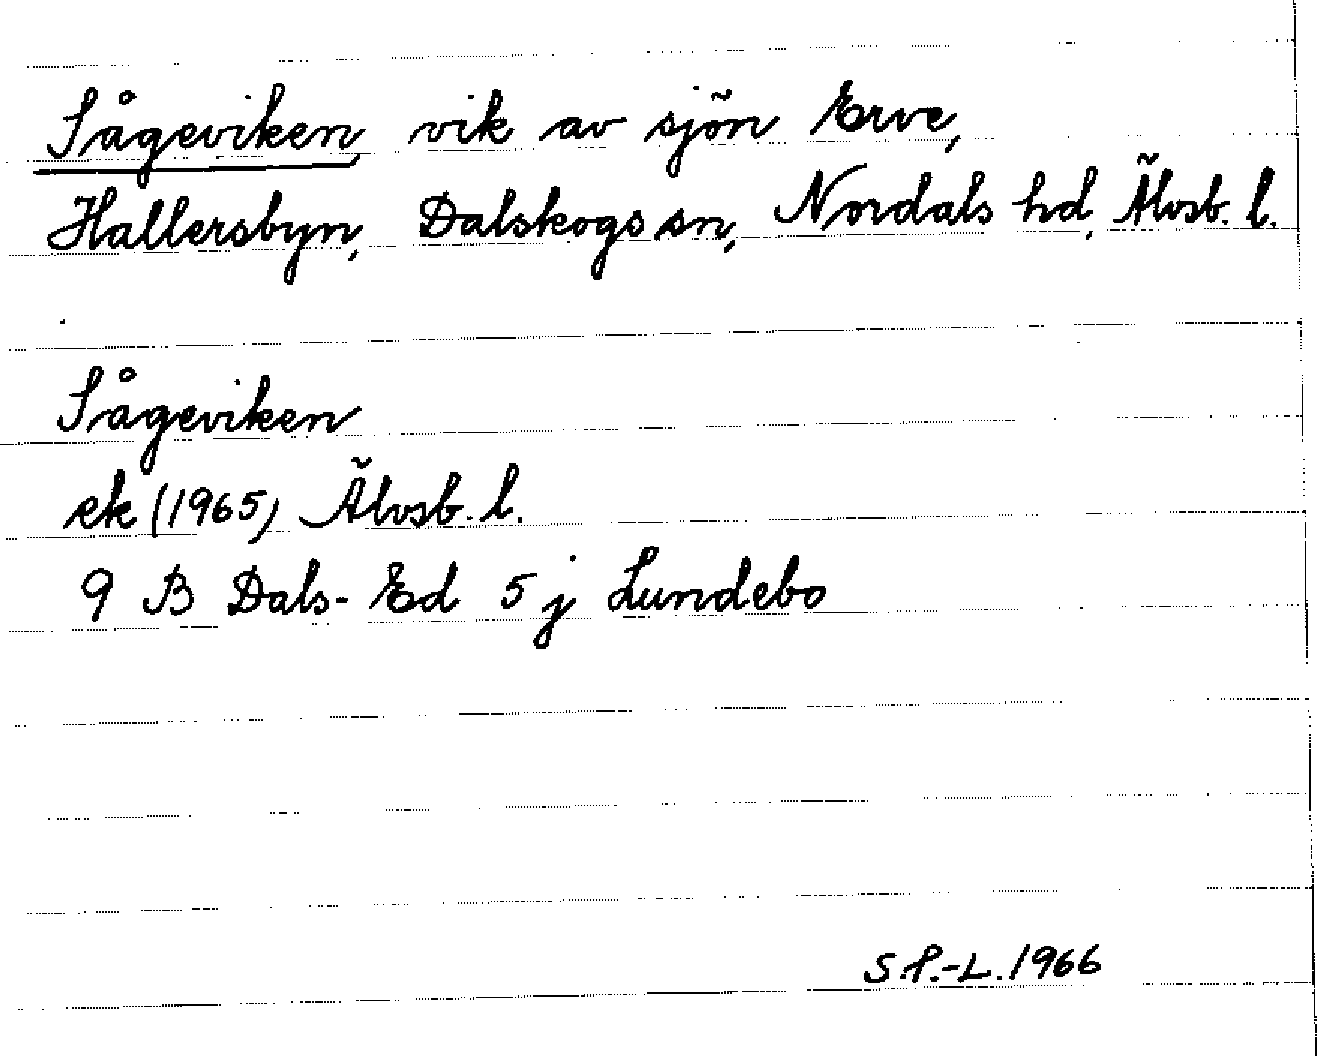 Sågeviken, vik av sjön Erve,
Hallersbyn, Dalskogs sn, Nordals hd, Älvsb. l.
Sågeviken
ek (1965) Älvsb. l.
9 B Dals-Ed 5 j Lundebo
S.P.-L. 1966